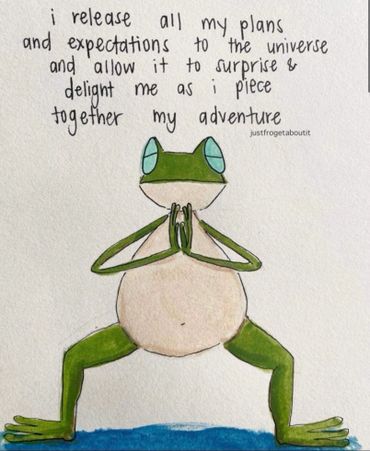 i release all my plans
and expectations to the universe
and allow it to surprise &
delight me as i piece
together my adventure
justfrogetaboutit